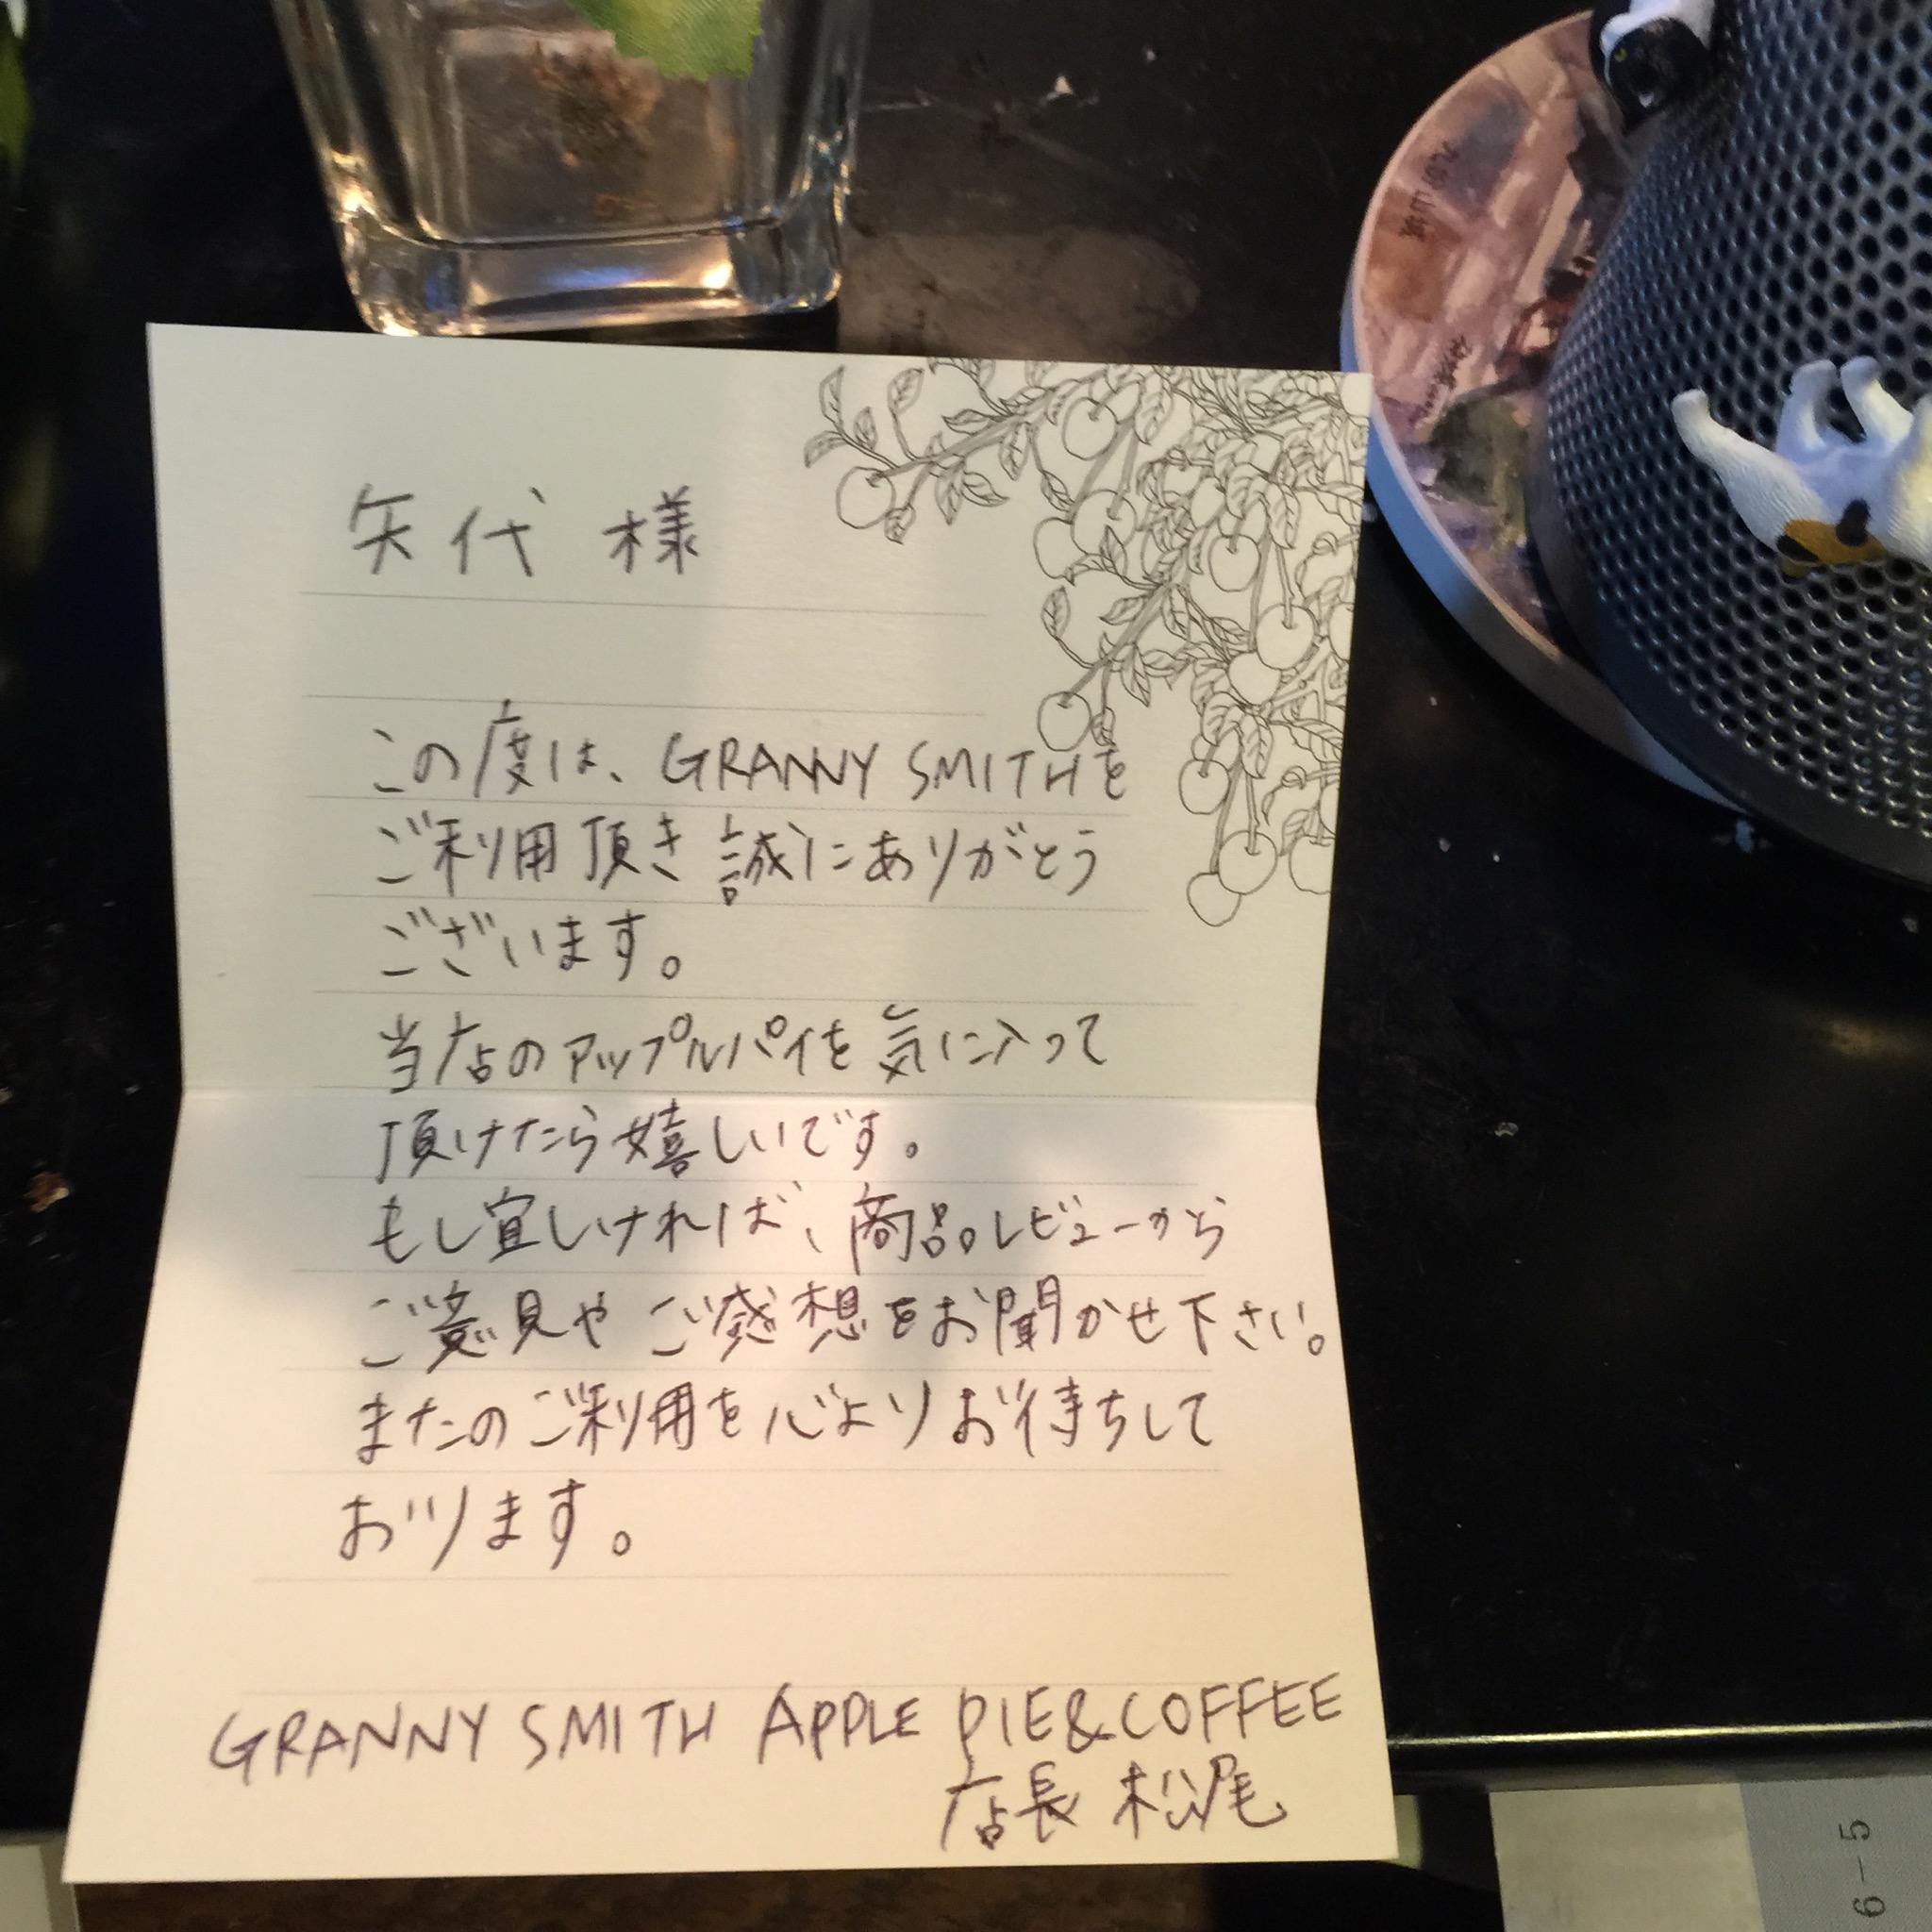 矢代 様
この度は、GRANNY SMITHを
ご利用頂き誠にありがとう
ございます。
当店のアップルパイを気に入って
頂けたら嬉しいです。
もし宜しければ、商品レビューから
ご意見やご感想をお聞かせ下さい。
またのご利用を心よりお待ちして
おります。
GRANNY SMITH APPLE PIE&COFFEE
店長 松尾
6-5